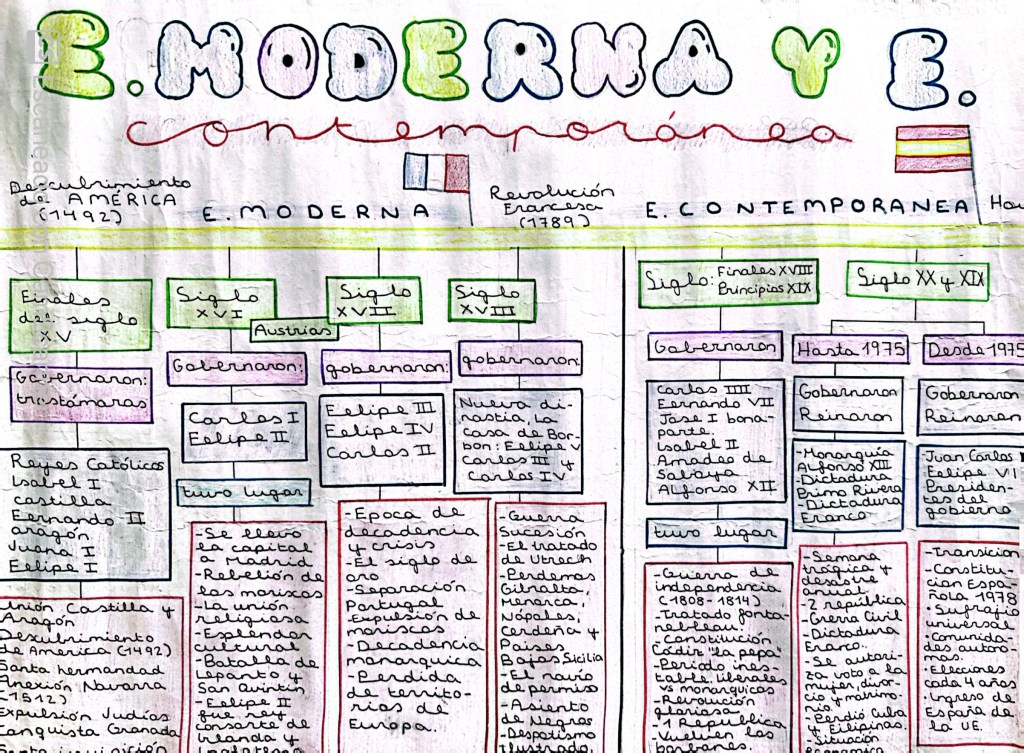 E. MODERNA Y E.
contemporánea
Descubrimiento
de AMÉRICA
(1492)
E. MODERNA
Revolución
Francesa
(1789)
E. CONTEMPORANEA
Finales
del siglo
XV
Gobernaron:
trastámaras
Reyes Católicos
Isabel I
castilla
Fernando II
aragón
Juana I
Felipe I
Unión Castilla y
Aragón
Descubrimiento
de America (1492)
Santa hermandad
Anexión Navarra
(1512)
Expulsión Judías
Conquista Granada
Siglo
XVI
Austrias
Gobernaron:
Carlos I
Felipe II
tuvo lugar
-Se llevó
la capital
a Madrid
-Rebelión de
los moriscos
-La unión
religiosa
-Esplendor
cultural
-Batalla de
Lepanto y
San Quintin
-Felipe II
fue rey
consorte de
Irlanda y
Siglo
XVII
gobernaron:
Felipe III
Felipe IV
Carlos II
-Epoca de
decadencia
y crisis
-El siglo de
oro
-Separación
Portugal
-Expulsión de
moriscos
-Decadencia
monarquica
-Perdida
de territo-
rios de
Europa.
Siglo
XVIII
gobernaron:
Nueva di-
nastia, la
casa de Bor-
bon: Felipe V
Carlos III y
Carlos IV
-Guerra
Sucesión
-El tratado
de Utrech
-Perdemos
Gibralta,
Menorca,
Nápoles,
Cerdeña y
Paises
Bajos Sicilia
-El navío
de permiso
-Asiento
de Negros
-Despotismo
Ilustrado
Siglo: Finales XVIII
Principios XIX
Gobernaron
Carlos IIII
Fernando VII
Jose I bona-
parte.
Isabel II
Amadeo de
Saboya
Alfonso XII
tuvo lugar
-Guerra de
independencia
(1808-1814)
-Tratado fonta-
nebleau.
-Constitución
Cádiz "la pepa"
-Periodo ines-
table. liberales
vs monarquicos
-Revolución
gloriosa
-1 República
-Vuelven los
borbones.
Siglo XX y XIX
Hasta 1975
Gobernaron
Reinaron
-Monarquía
Alfonso XIII
-Dictadura
Primo Rivera
-Dictadura
Franco
-Semana
trágica y
desastre
anual.
-2 república
-Grerra Civil
-Dictadura
Franco.
-Se autori-
za voto a la
mujer, divor-
cio y matrimo-
nio.
-Perdió Cuba
y Filipinas
-Situción
Desde 1975
Gobernaron
Reinaron
Juan Carlos I
Felipe VI
Presiden-
tes del
gobierno
-Transicion
-Constitu-
cion Espa-
ñola 1978
-Sufrajio
universal
-Comunida-
des autono-
mas.
-Elecciones
cada 4 años
-ingreso de
España de
la UE.